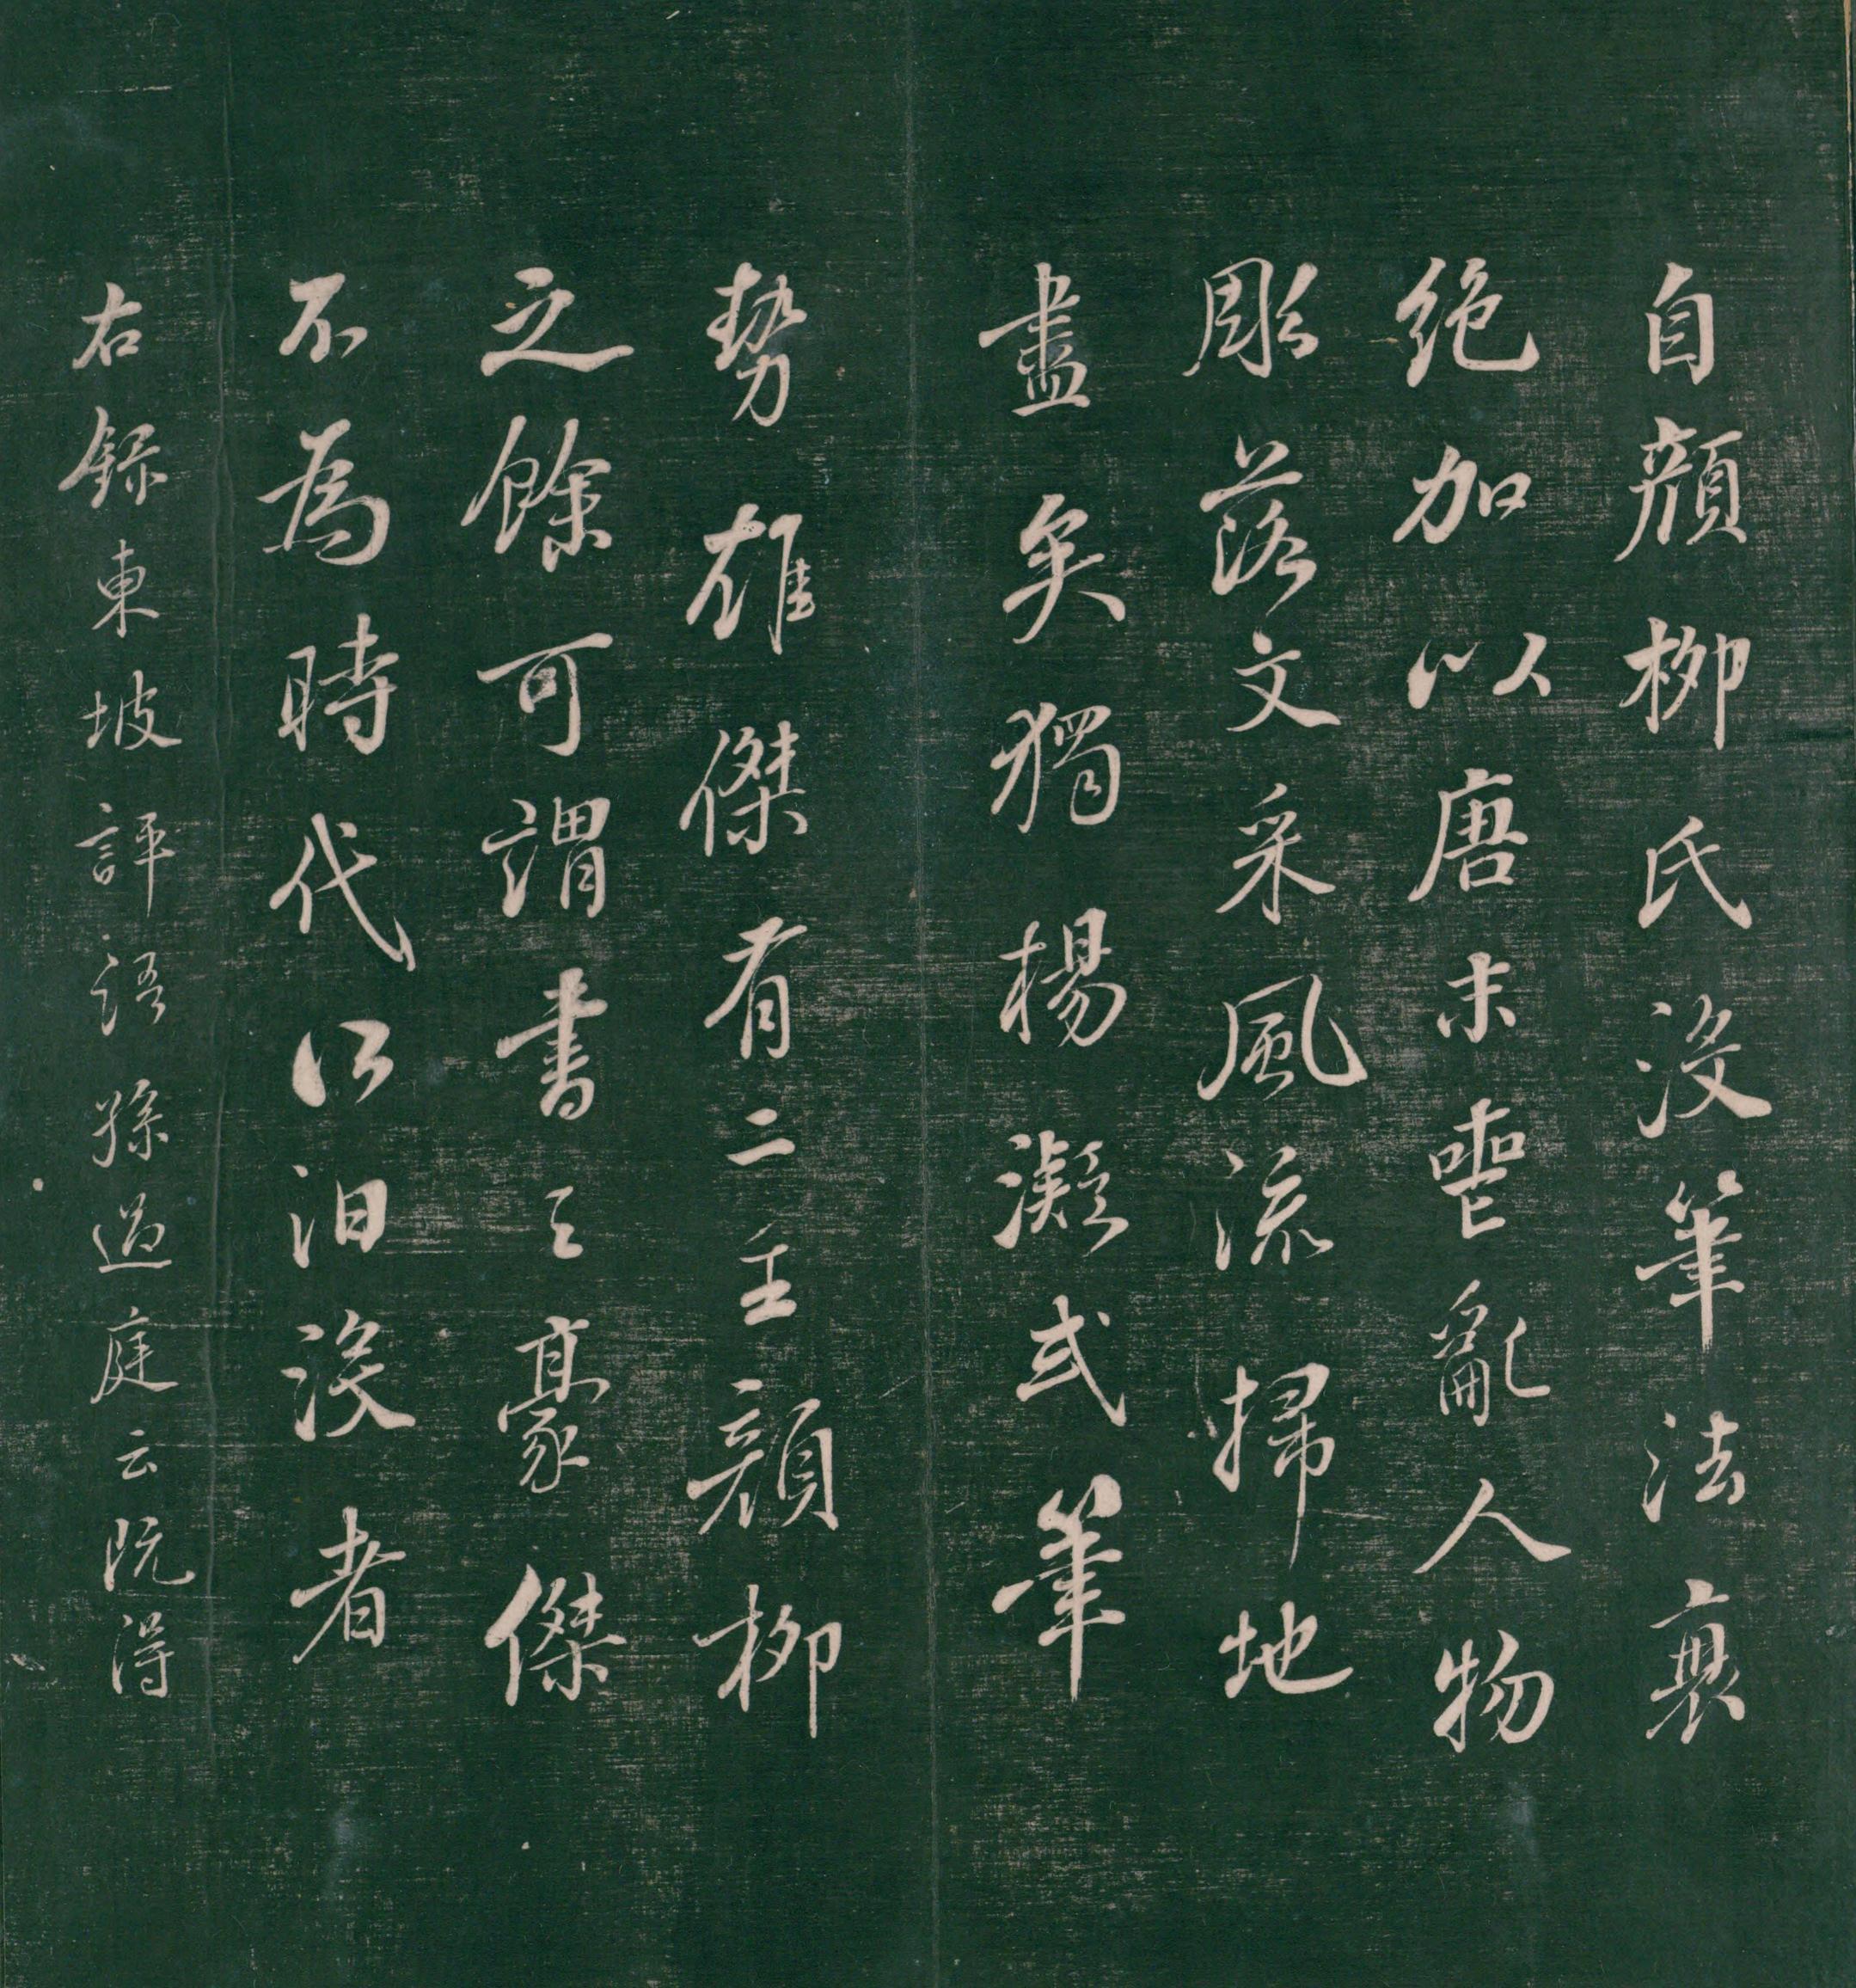 自顏柳氏没筆法衰
絶加以唐末喪亂人物
彫落文采風流掃地
盡矣獨楊凝式筆
勢雄傑有二王顏柳
之餘可謂書之豪傑
不為時代所汩没者
右録東坡評語孫過庭云既得